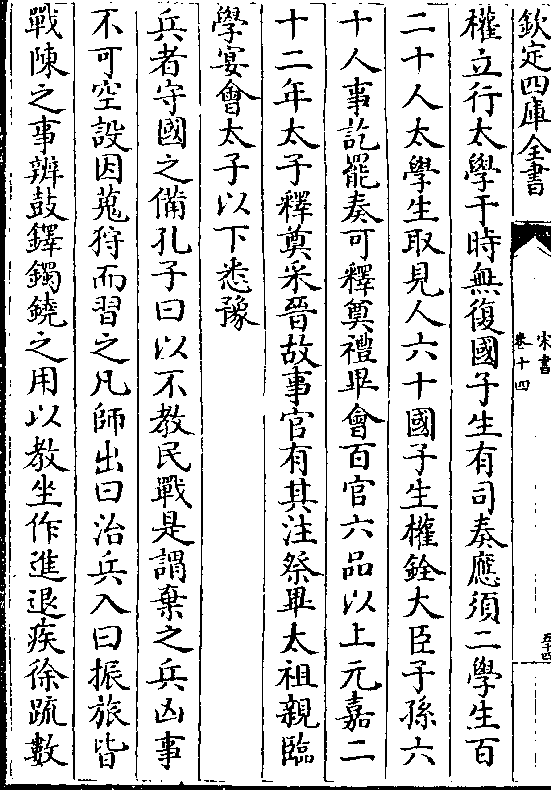 欽定四庫全書
宋書
卷十四
五十四
權立行太學于時無復國子生有司奏應須二學生百
二十人太學生取見人六十國子生權銓大臣子孫六
十人事訖罷奏可釋奠禮畢會百官六品以上元嘉二
十二年太子釋奠采晉故事官有其注祭畢太祖親臨
學宴會太子以下悉豫
兵者守國之備孔子曰以不教民戰是謂棄之兵凶事
不可空設因蒐狩而習之凡師出曰治兵入曰振旅皆
戰陳之事辨鼓鐸鐲鐃之用以教坐作進退疾徐疏數